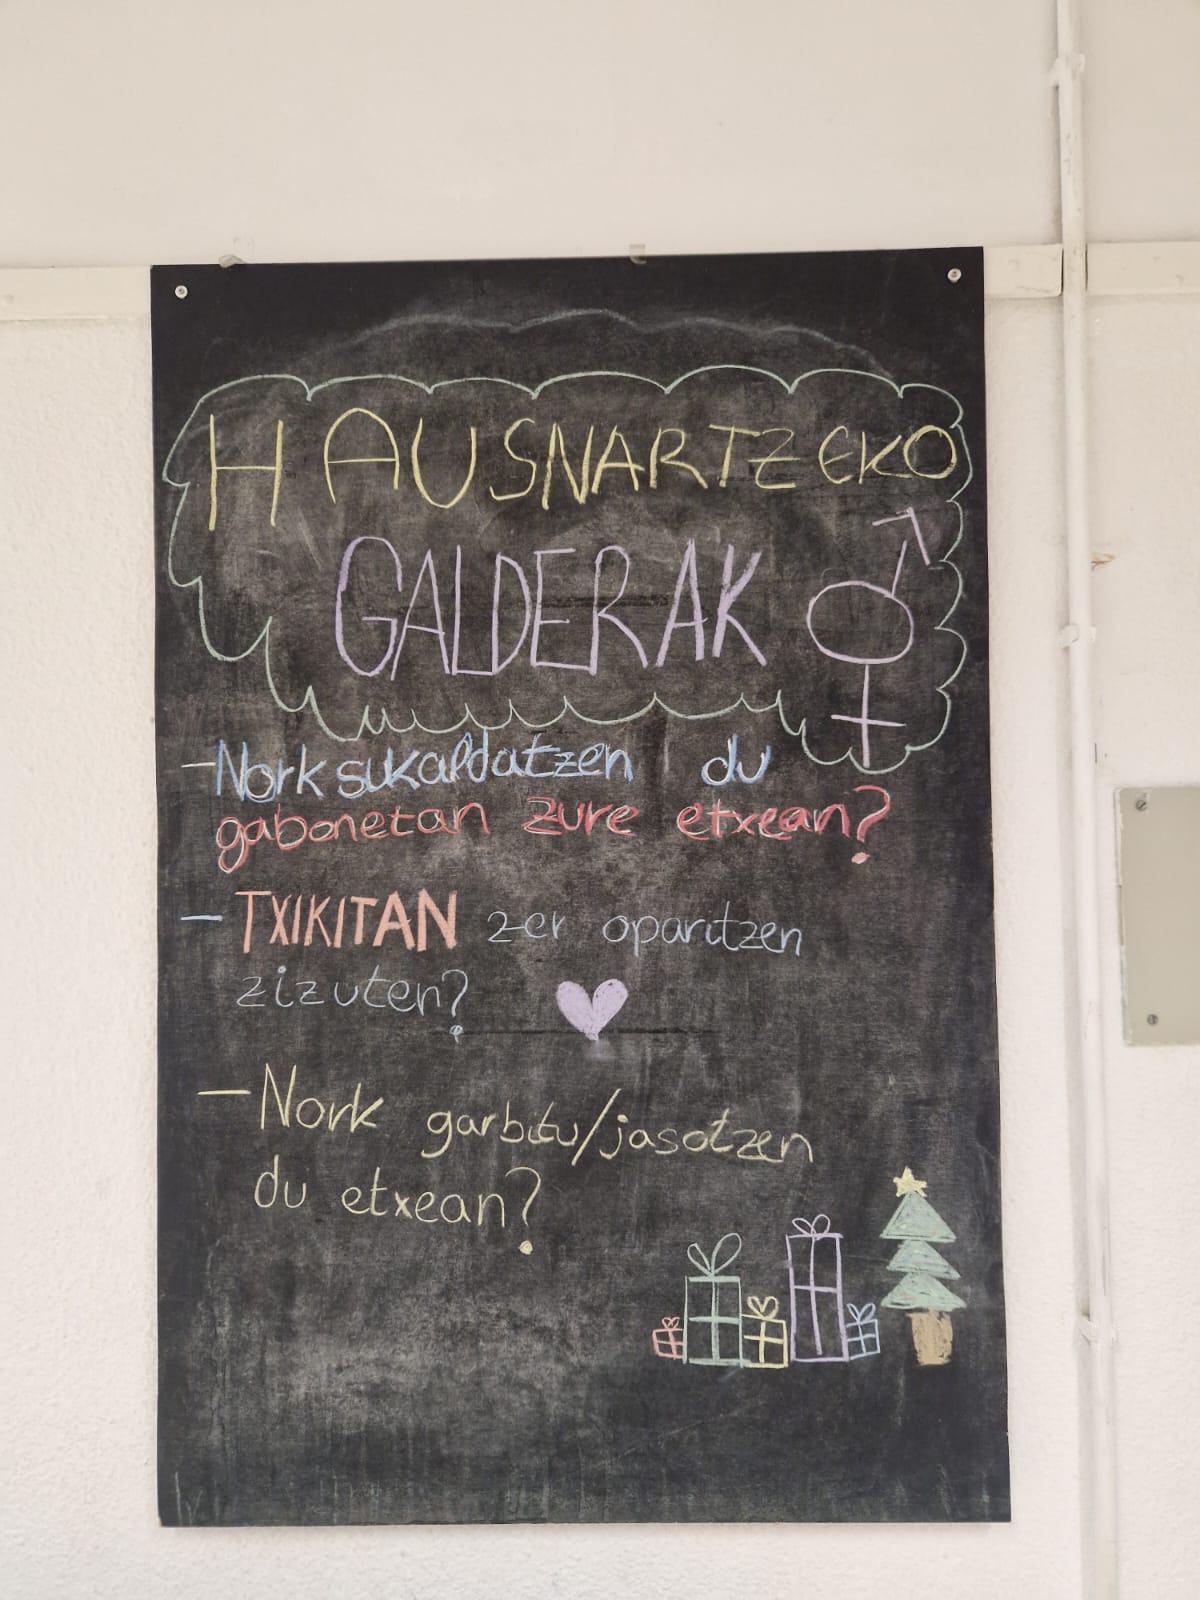 HAUSNARTZEKO
GALDERAK
- Nork sukaldatzen du
gabonetan zure etxean?
- TXIKITAN zer oparitzen
zizuten?
- Nork garbitu/jasotzen
du etxean?